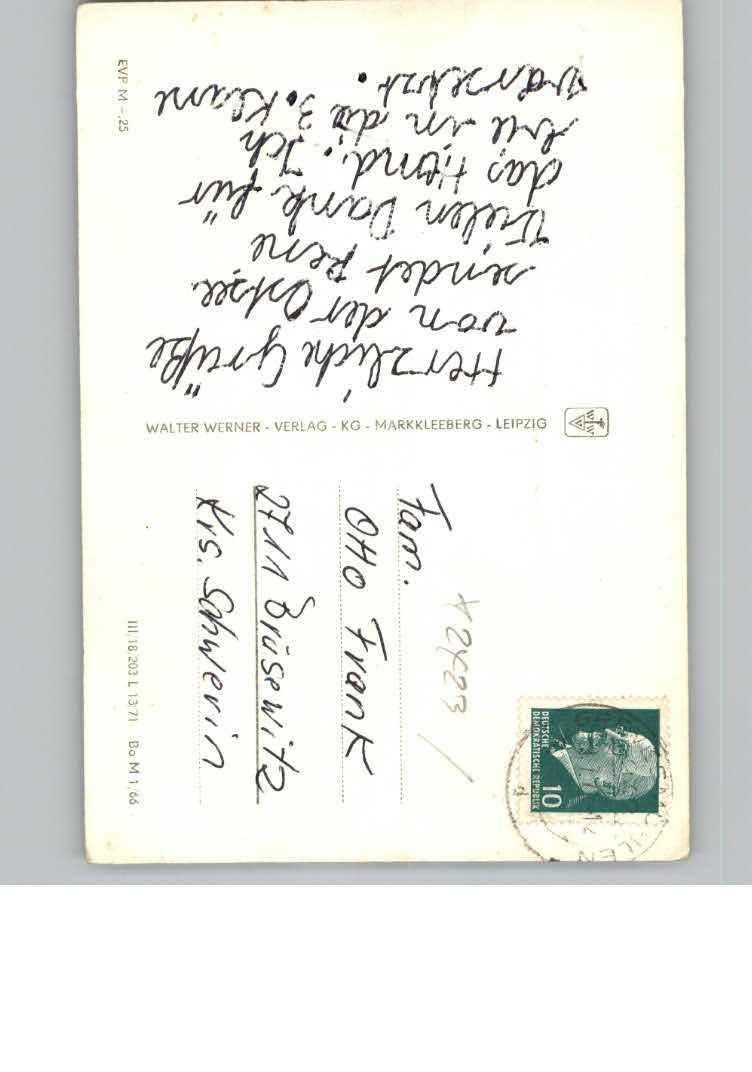 Herzliche Grüße
von der Ostsee
sendet Rene
Vielen Dank für
das Hemd. Ich
bin in die 3. Klasse
versetzt.
EVP M -,25
WALTER WERNER - VERLAG - KG - MARKKLEEBERG - LEIPZIG
Fam.
Otto Frank
2711 Brüsewitz
Krs. Schwerin
III/18/203 L 13/71 Bo M 1/66
DEUTSCHE
DEMOKRATISCHE REPUBLIK
10